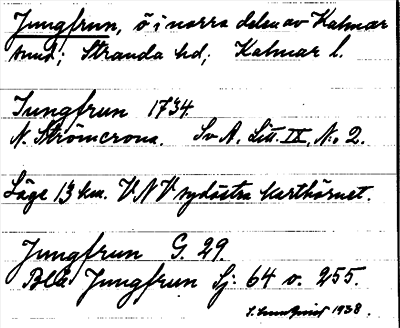 Jungfrun, ö i norra delen av Kalmar
sund; Stranda hd; Kalmar l.
Jungfrun 1734
N. Strömcrona. Sv A. Litt. IX, No 2.
Läge 13 km. VNV sydöstra karthörnet.
Jungfrun G. 29.
Blå Jungfrun Sj: 64 o. 255.
S. Lundqvist 1938.